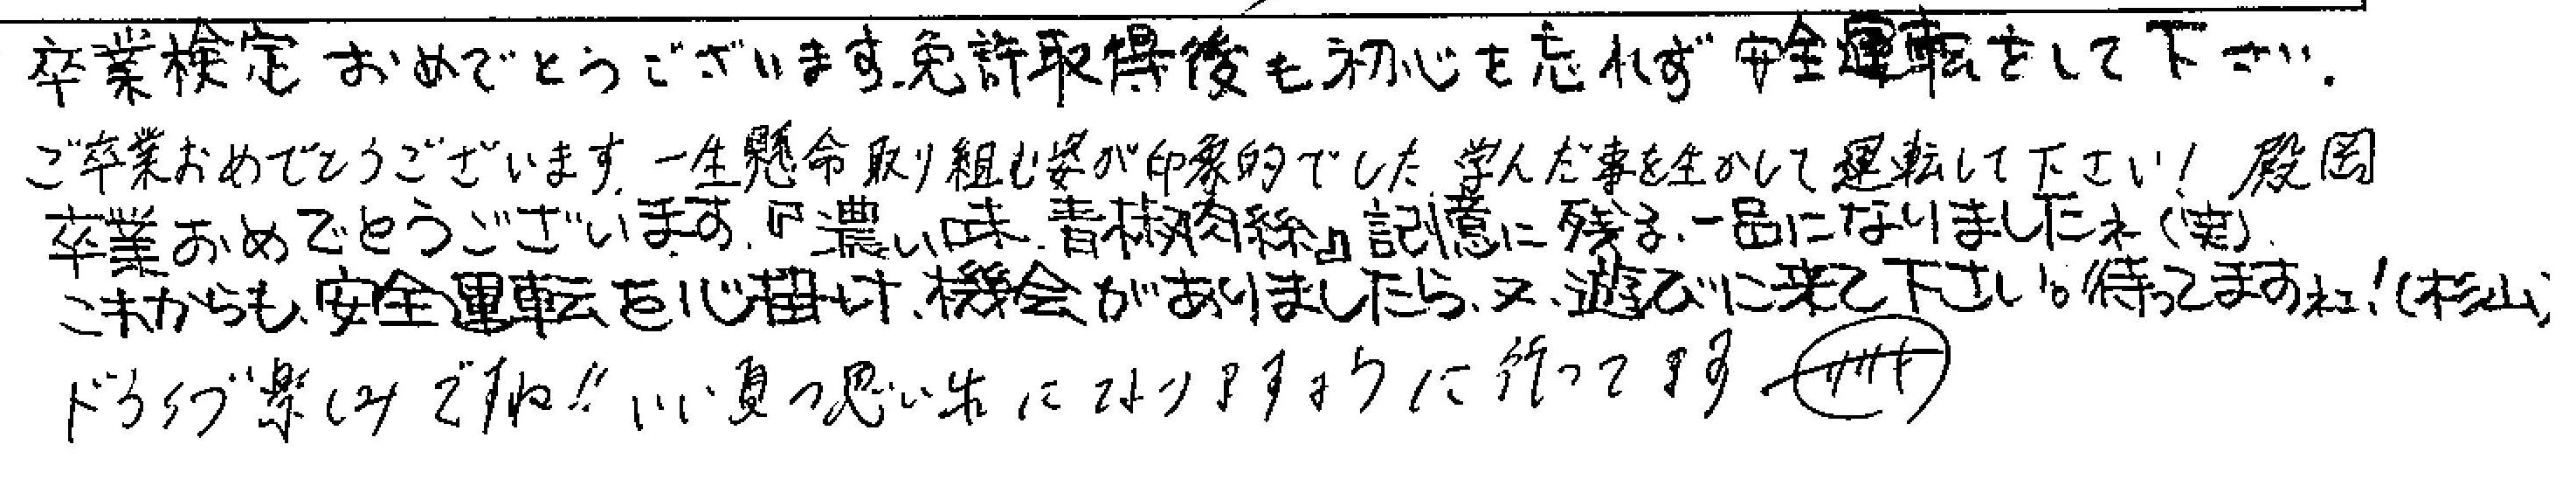 卒業検定おめでとうございます.免許取得後も初心を忘れず安全運転をして下さい.
ご卒業おめでとうございます.一生懸命取り組む姿が印象的でした.学んだ事を生かして運転して下さい! 殿岡
卒業おめでとうございます.『濃い味.青椒肉絲』記憶に残る.一品になりましたネ(笑).
これからも.安全運転を心掛け.機会がありましたら.又.遊びに来て下さい。待ってますネ!(杉山)
ドライブ楽しみですね!! いい夏の思い出になりますように行ってます